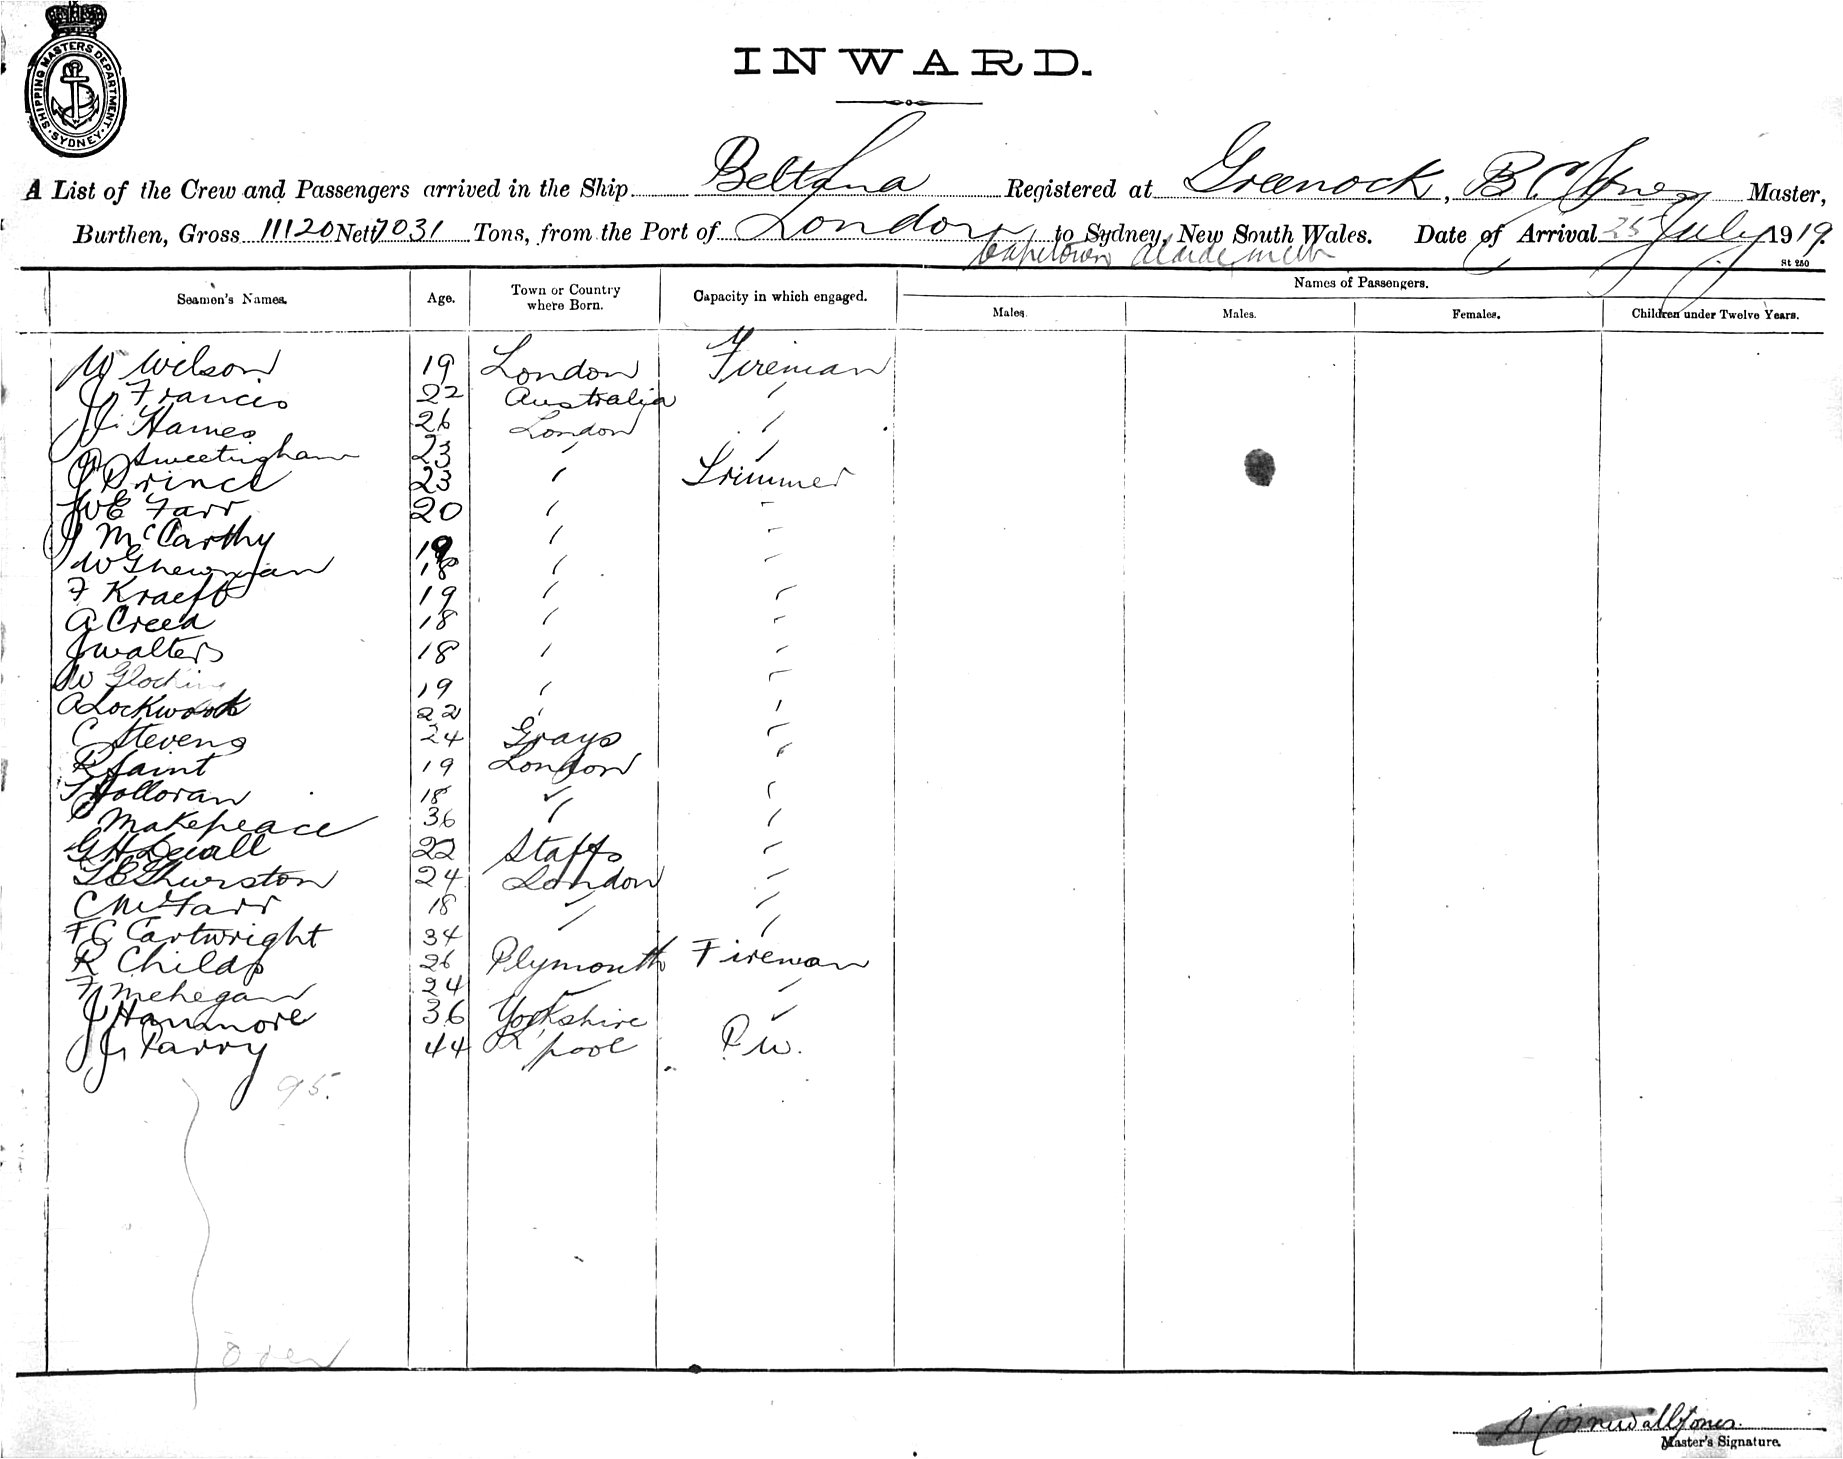 SHIPPING MASTERS DEPARTMENT · SYDNEY ·
INWARD.
A List of the Crew and Passengers arrived in the Ship Beltana Registered at Greenock, B C Jones Master,
Burthen, Gross 11120 Nett 7031 Tons, from the Port of London to Sydney, New South Wales. Date of Arrival 25 July 1919.
Capetown Adelaide, Melb
St 250
Seamen's Names. Age. Town or Country where Born. Capacity in which engaged. Names of Passengers.
Males. Males. Females. Children under Twelve Years.
W Wilson 19 London Fireman
J Francis 22 Australia "
J Hames 26 London "
Sweetingham 23 " "
J Prince 23 " Trimmer
W E Farr 20 " "
J McCarthy 19 " "
W G Newman 18 " "
F Kraeft 19 " "
A Creed 18 " "
J Walters 18 " "
W Glocking 19 " "
A Lockwood 22 " "
C Stevens 24 Grays "
R Saint 19 London "
T Holloran 18 " "
Makepeace 36 " "
G H Dewall 22 Staffs "
Thurston 24 London "
C McFarr 18 " "
F C Cartwright 34 " "
R Childs 26 Plymouth Fireman
F Mehegan 24 " "
J Hanmore 36 Yorkshire "
J Parry 44 L'pool P.W.
95.
Over
B. Cornwall Jones.
Master's Signature.